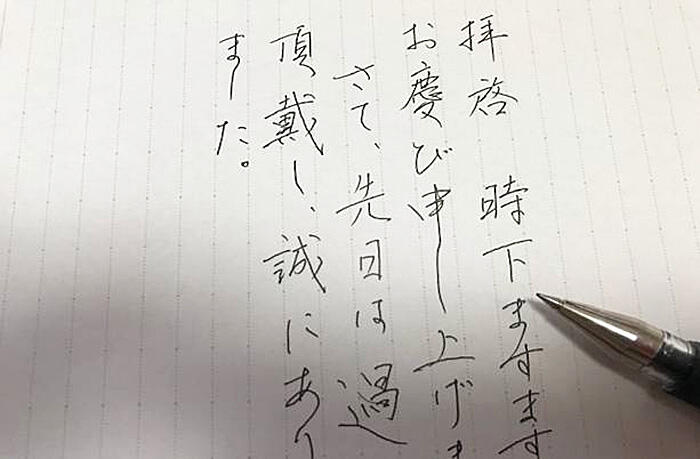 拝啓 時下ますます
お慶び申し上げま
さて、先日は過
頂戴し、誠にあり
ました。